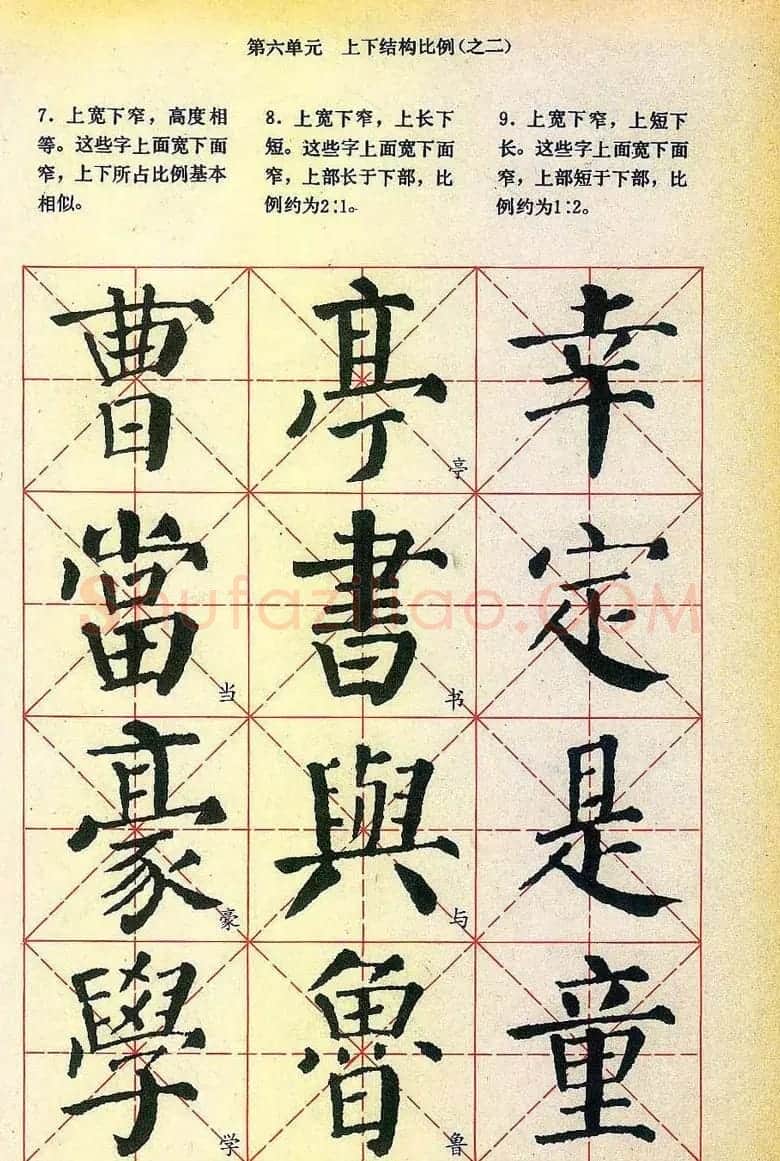 第六单元 上下结构比例(之二)
7. 上宽下窄，高度相
等。这些字上面宽下面
窄，上下所占比例基本
相似。
8. 上宽下窄，上长下
短。这些字上面宽下面
窄，上部长于下部，比
例约为2:1。
9. 上宽下窄，上短下
长。这些字上面宽下面
窄，上部短于下部，比
例约为1:2。
曹 亭 亭 幸
當 当 書 书 定
豪 豪 與 与 是
學 学 魯 鲁 童
Shufaziliao.COM